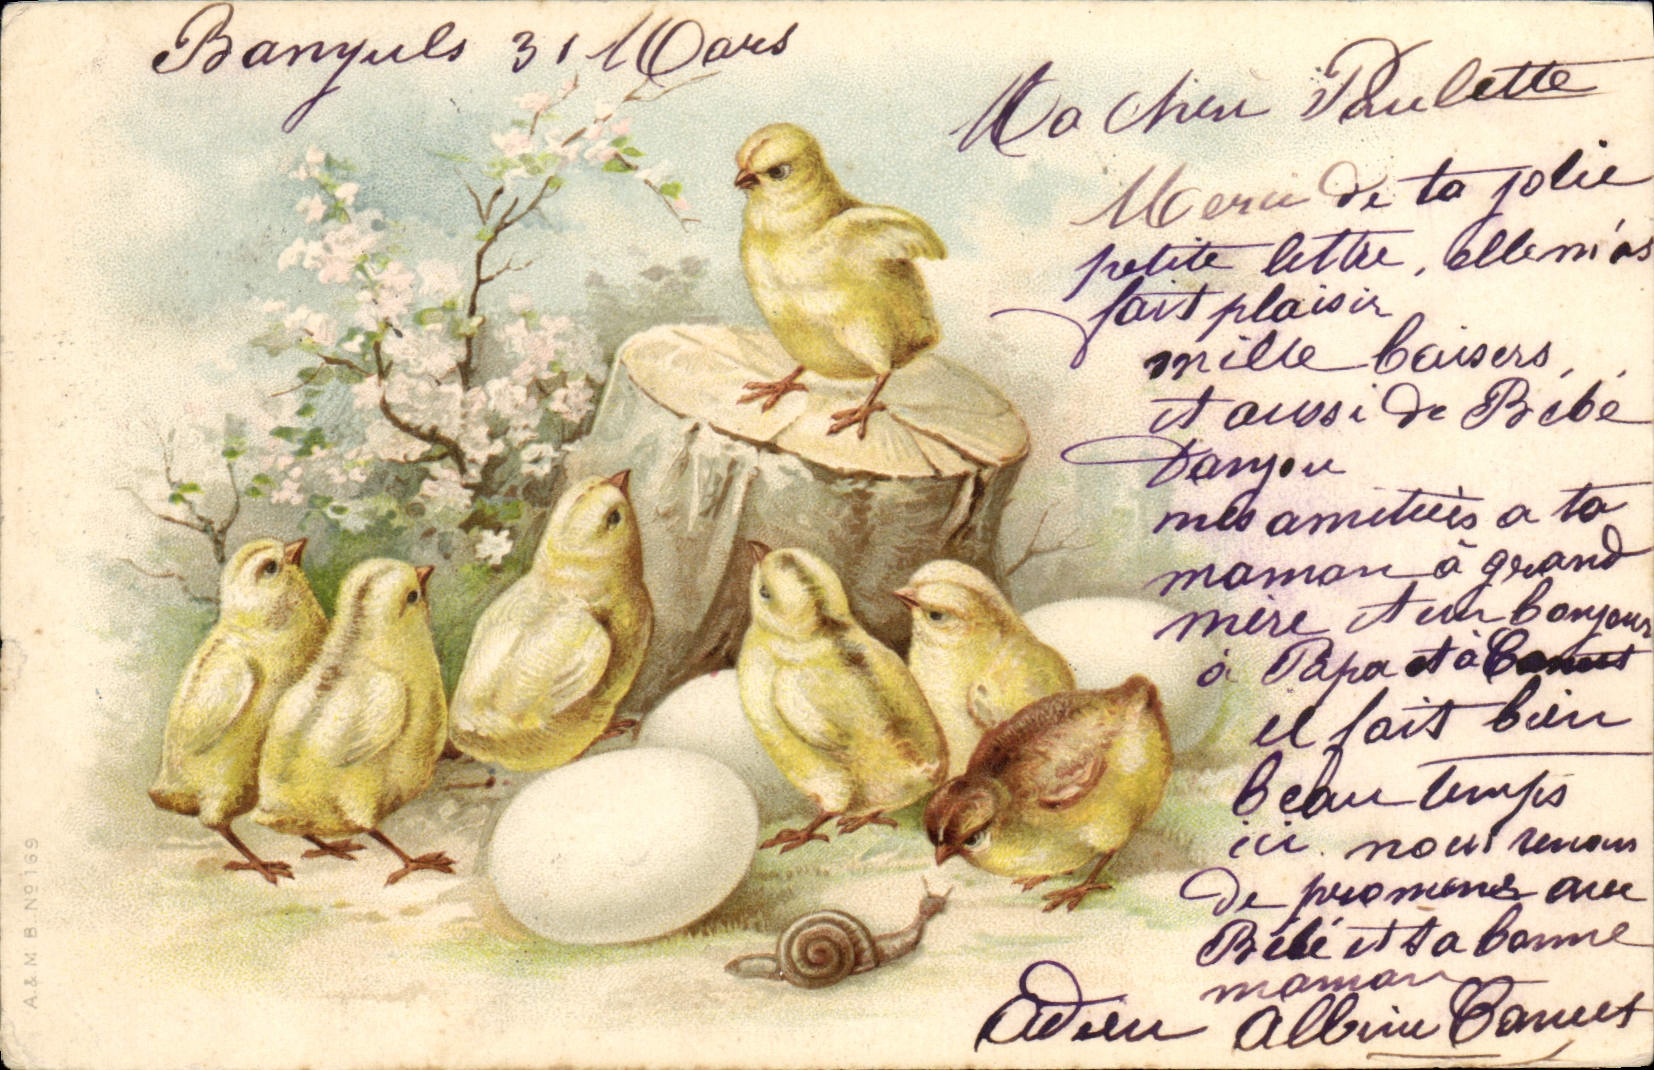 Banyuls 31 Mars
Ma cher Paulette
Merci de ta jolie
petite lettre, elle m'as
fait plaisir
mille baisers,
et aussi de Bébé
Danjou
mes amitiées a ta
maman à grand
mère et un bonjour
à Papa et à
il fait bien
beau temps
ici. nous venons
de promener avec
Bébé et sa bonne
maman
Adieu Albine
A. & M. B. No 169